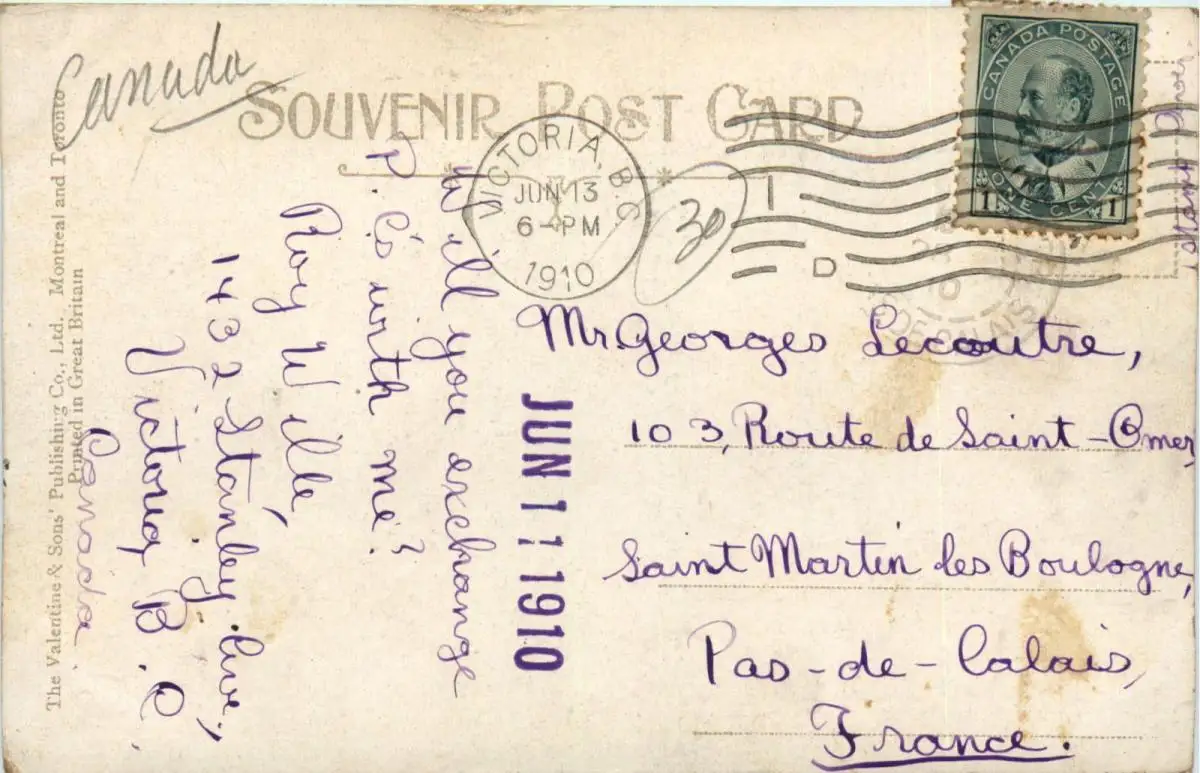 Canada
SOUVENIR POST CARD
CANADA POSTAGE
1 ONE CENT 1
VICTORIA, B.C.
JUN 13
6-PM
1910
I
D
30
Will you exchange
P. C's with me?
Roy Wille,
1432 Stanley Ave.,
Victoria, B.C.
Canada
JUN 11 1910
Mr. Georges Lecoutre,
103, Route de Saint-Omer,
Saint Martin les Boulogne,
Pas-de-Calais,
France.
The Valentine & Sons' Publishing Co., Ltd. Montreal and Toronto
Printed in Great Britain
DE-CALAIS